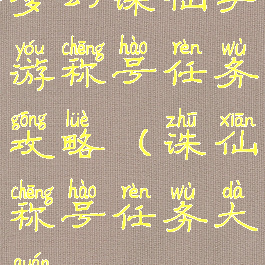 yóu chēng hào rèn wù
游称号任务
gōng lüè zhū xiān
攻略（诛仙
chēng hào rèn wù dà
称号任务大
quán